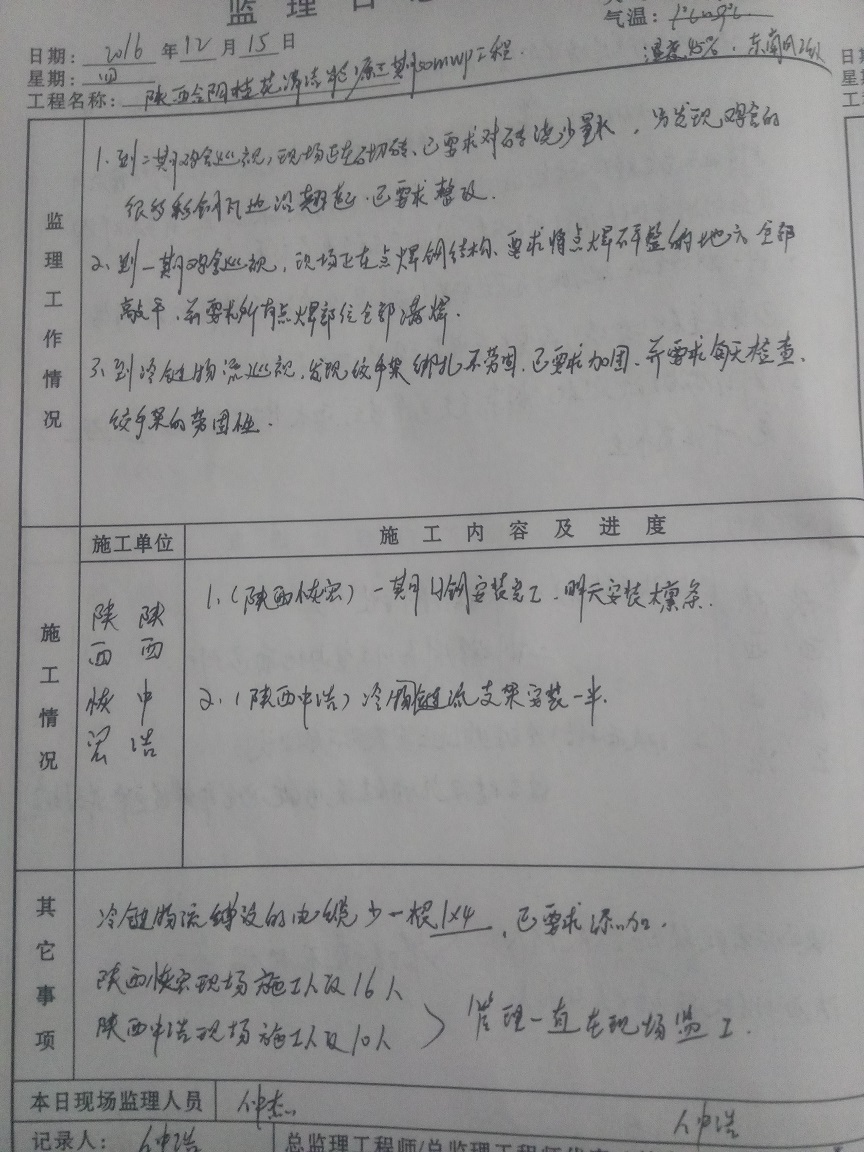 监理日志
气温：
日期：2016年12月15日
湿度45%．东南风2级
星期：四
工程名称：陕西合阳桂花清洁能源二期50MWP工程．
监理工作情况
1.到二期鸡舍巡视，现场正在砌砖、已要求对砖浇少量水，另发现鸡舍的
很多彩钢瓦边沿翘起．已要求整改．
2、到一期鸡舍巡视，现场正在点焊钢结构、要求将点焊不平整的地方全部
敲平．并要求所有点焊部位全部满焊．
3、到冷链物流巡视，发现绞手架绑扎不劳固．已要求加固、并要求每天检查．
绞手架的劳固性．
施工情况
施工单位
施工内容及进度
陕西恢宏
陕西中浩
1、（陕西恢宏）一期H钢安装完工．明天安装檩条．
2、（陕西中浩）冷链物流支架安装一半．
其它事项
冷链物流铺设的电缆少一根1×4，已要求添加．
陕西恢宏现场施工人员16人
陕西中浩现场施工人员10人
监理一直在现场监工．
本日现场监理人员
仲杰
仲浩
记录人：仲浩
总监理工程师/总监理工程师代表